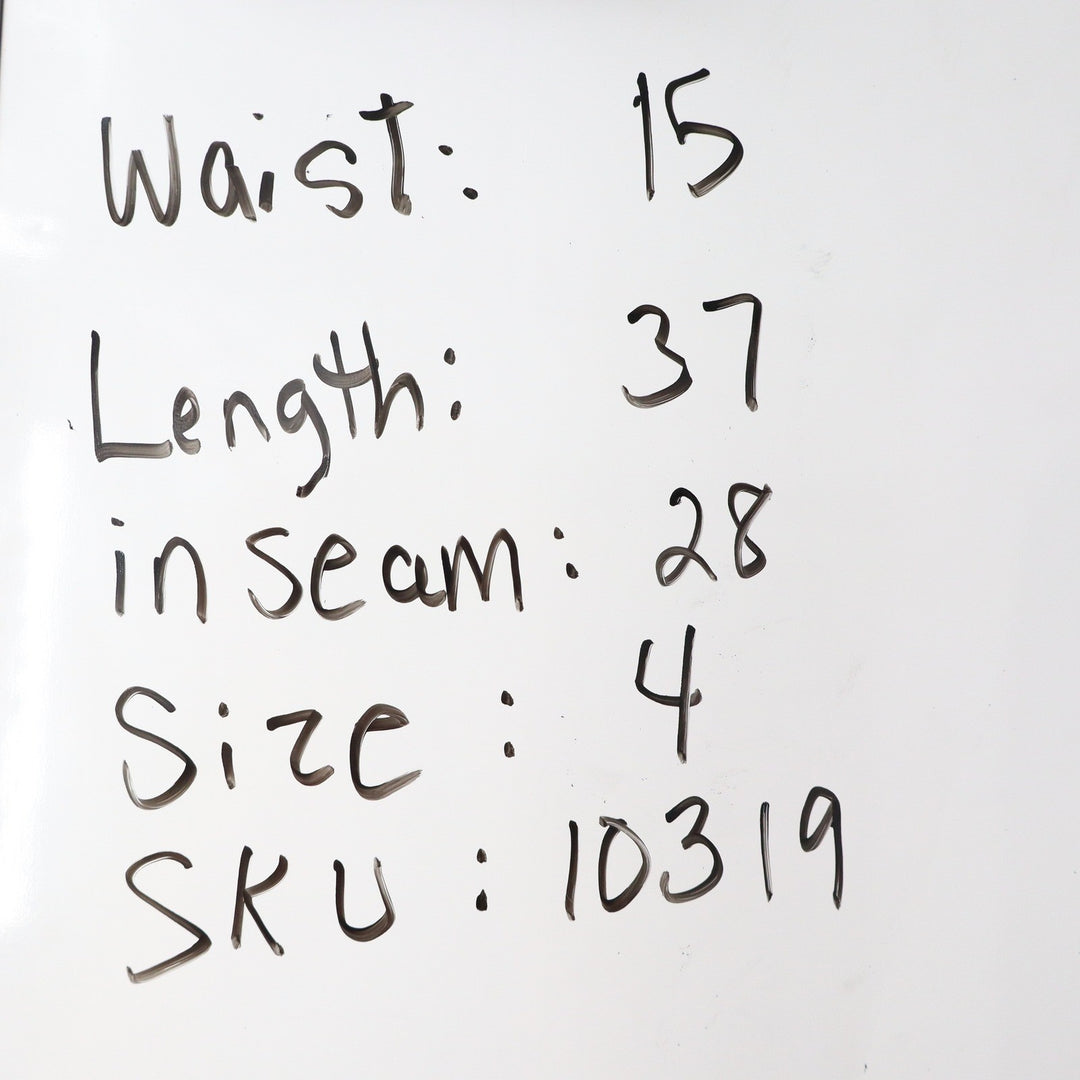 Waist: 15
Length: 37
inseam: 28
Size: 4
SKU: 10319